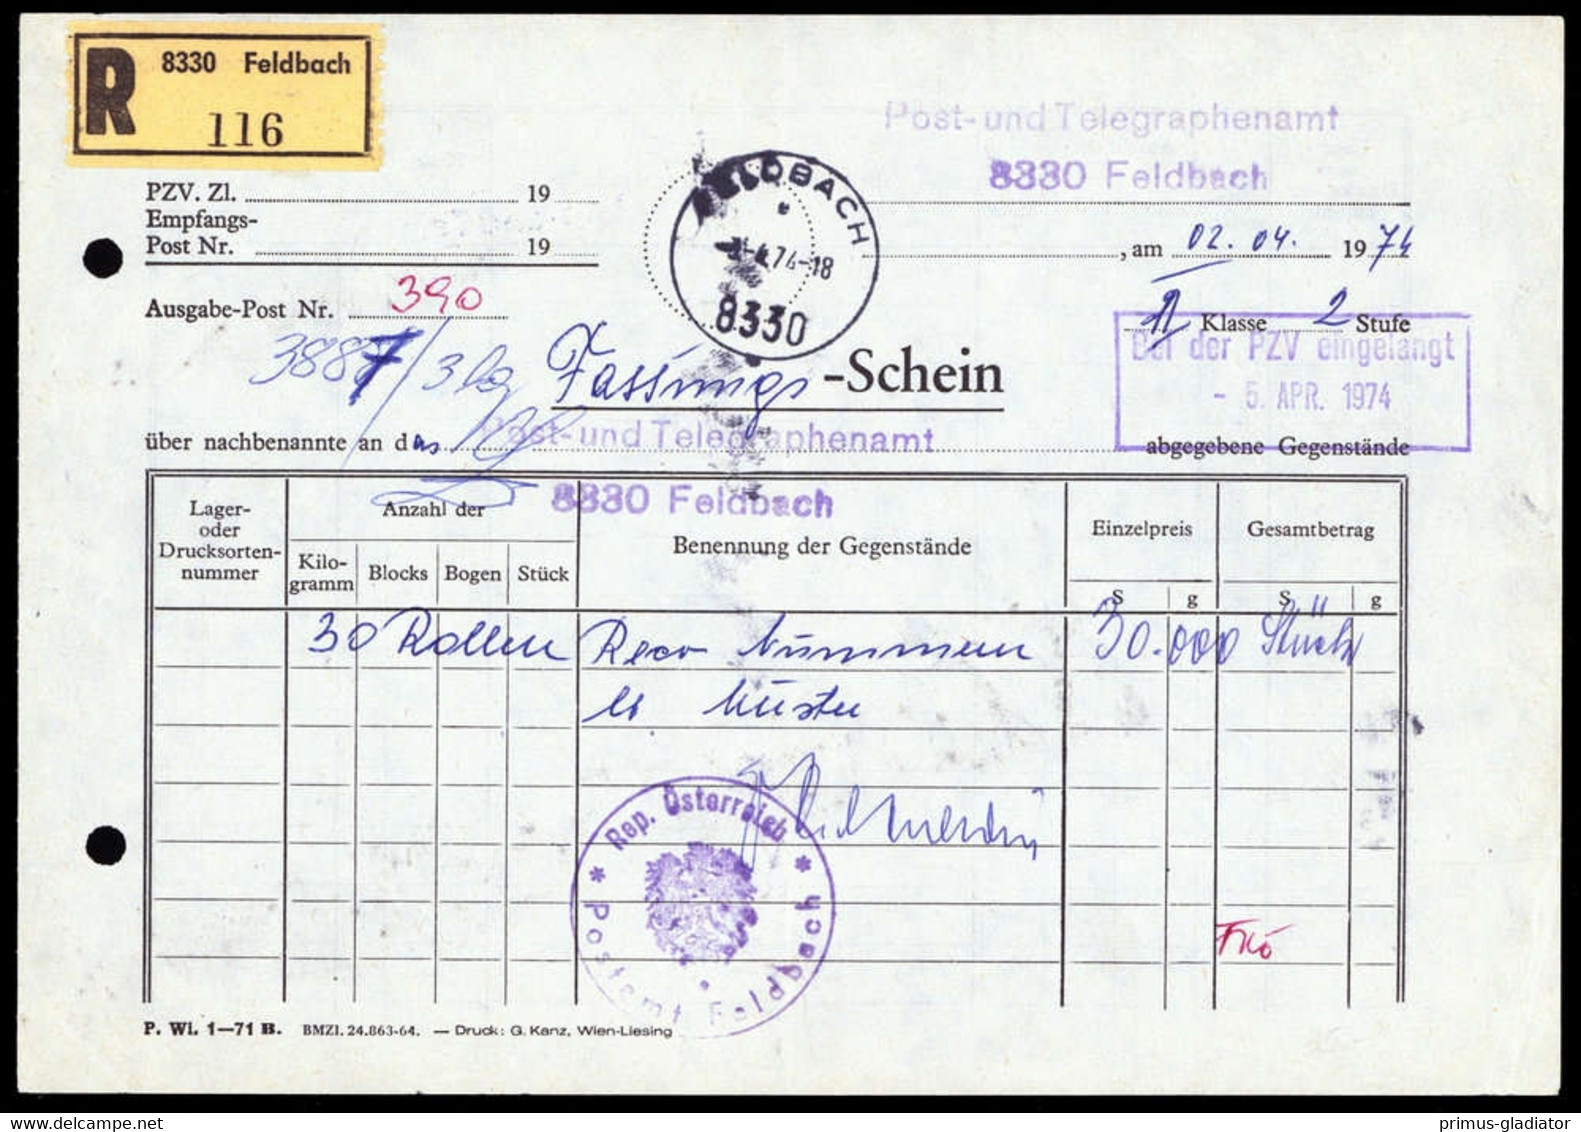 R 8330 Feldbach
116
Post- und Telegraphenamt
8330 Feldbach
PZV. Zl. 19
Empfangs-
Post Nr. 19
FELDBACH
74-18
8330
, am 02. 04. 1974
Ausgabe-Post Nr. 390
Klasse 2 Stufe
Bei der PZV eingelangt
- 5. APR. 1974
Fassungs-Schein
über nachbenannte an das Post- und Telegraphenamt abgegebene Gegenstände
8330 Feldbach
Lager-
oder
Drucksorten-
nummer
Anzahl der
Kilo-
gramm
Blocks
Bogen
Stück
Benennung der Gegenstände
Einzelpreis
S g
Gesamtbetrag
S g
30 Rollen Reco Nummern 30.000 Stück
Muster
Rep. Österreich
* Postamt Feldbach *
P. Wi. 1—71 B. BMZl. 24.863-64. — Druck: G. Kanz, Wien-Liesing
delcampe.net
primus-gladiator